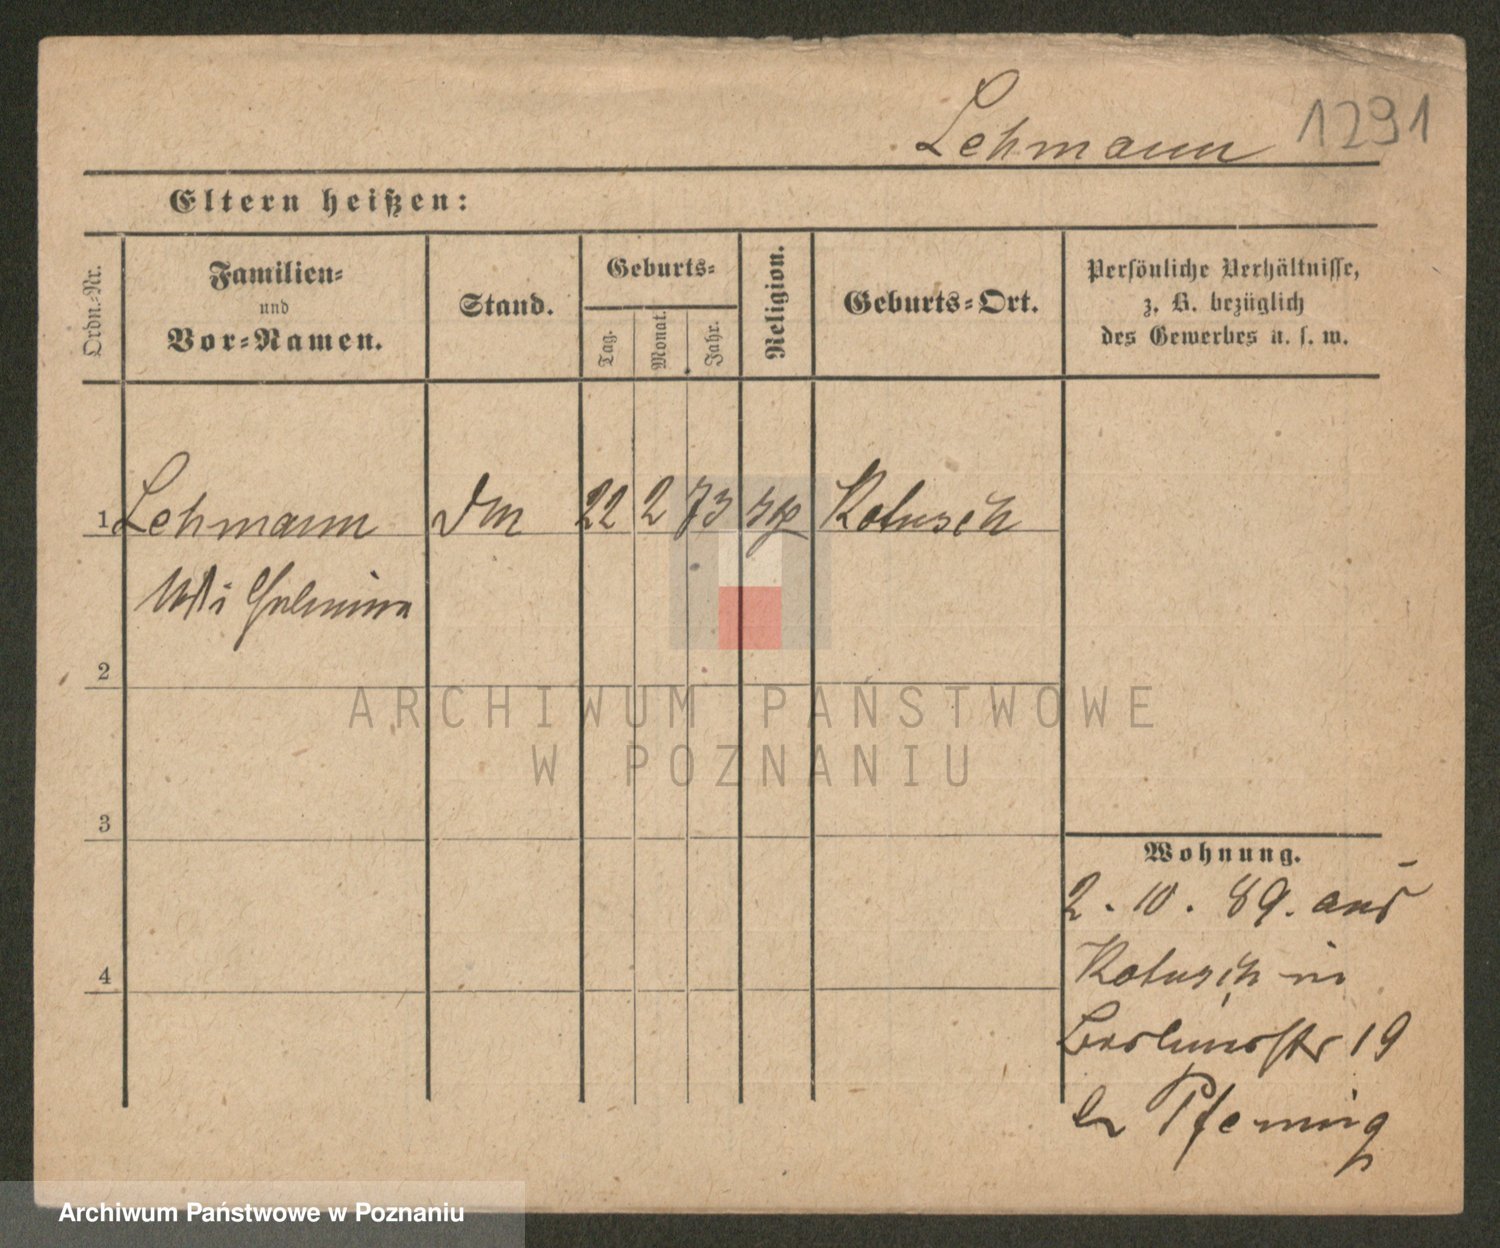 Lehmann 1291
Eltern heißen:
Ordn.-Nr.
Familien-
und
Vor-Namen.
Stand.
Geburts-
Tag.
Monat.
Jahr.
Religion.
Geburts-Ort.
Persönliche Verhältnisse,
z. B. bezüglich
des Gewerbes u. s. w.
1 Lehmann 22 2 73 Kotusch
2
ARCHIWUM PAŃSTWOWE
W POZNANIU
3
4
Wohnung.
2. 10. 89. aus
Kotusch in
Berlinerstr 19
Pfening
Archiwum Państwowe w Poznaniu